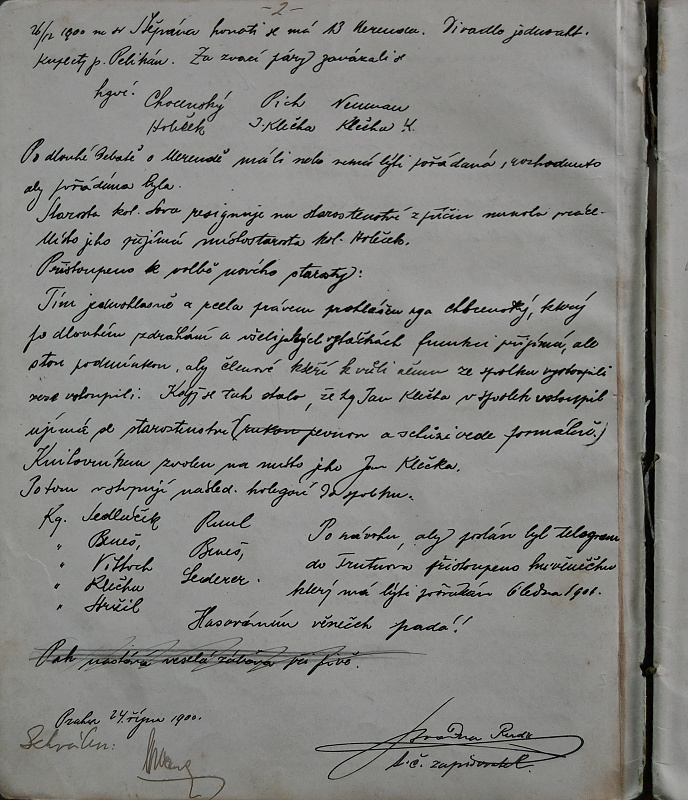 -2-
26/12 1900 na sv Štěpána konati se má B Merenda. Divadlo jednoakt.
kuplety p. Pelikán. Za zvací páry zavázali se
kgvé: Chocenský Pich Neuman
Holeček J. Klečka Klečka H.
Po dlouhé debatě o Merendě má-li nebo nemá býti pořádaná, rozhodnuto
aby pořádána byla.
Starosta kol. Sova resignuje na starostenství z příčin mnoha práce.
Místo jeho přijímá místostarosta kol. Holeček.
Přistoupeno k volbě nového starosty:
Tím jednohlasně a zcela právem prohlášen kga Chocenský, který
po dlouhém zdráhání a všelijakých vytáčkách funkci přijímá, ale
s tou podmínkou, aby členové kteří k vůli němu ze spolku vystoupili
zase vstoupili. Když se tak stalo, že kg Jan Klečka v spolek vstoupil
ujímá se starostenství (rukou pevnou a schůzi vede formálně.)
Knihovníkem zvolen na místo jeho Jan Klečka.
Potom vstupují násled. kolegové do spolku.
Kg. Sedláček Ruml Po návrhu, aby poslán byl telegram
" Beneš, Beneš, do Trutnova přistoupeno k věnečku
" Vittoch Lederer. který má býti pořádán 6 ledna 1901.
" Klečka
" Hrčil
Hlasováním věneček padá!!
Pak nastává veselá zábava při pivě.
Praha 24. října 1900.
Schválen:
Ruda
t. č. zapisovatel.